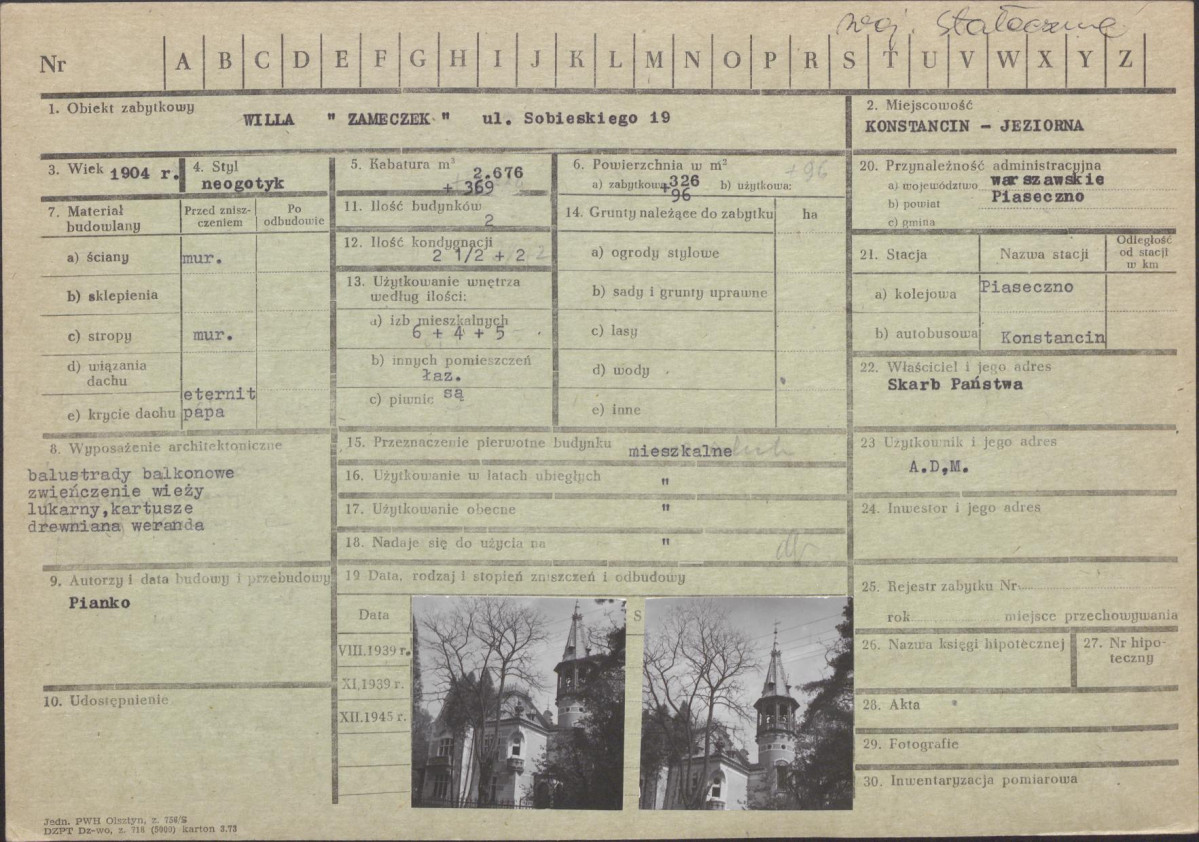 woj. stołeczne
Nr A B C D E F G H I J K L M N O P R S T U V W X Y Z
1. Obiekt zabytkowy
WILLA " ZAMECZEK " ul. Sobieskiego 19
2. Miejscowość
KONSTANCIN - JEZIORNA
3. Wiek 1904 r.
4. Styl
neogotyk
5. Kabatura m³
2.676
+ 369
6. Powierzchnia w m²
+96
a) zabytkowa 326 b) użytkowa:
+96
20. Przynależność administracyjna
a) województwo warszawskie
b) powiat Piaseczno
c) gmina
7. Materiał budowlany
Przed zniszczeniem
Po odbudowie
a) ściany mur.
b) sklepienia
c) stropy mur.
d) wiązania
dachu
eternit
e) krycie dachu papa
11. Ilość budynków
2
12. Ilość kondygnacji
2 1/2 + 2
13. Użytkowanie wnętrza
według ilości:
a) izb mieszkalnych
6 + 4 + 5
b) innych pomieszczeń
łaz.
c) piwnic są
14. Grunty należące do zabytku ha
a) ogrody stylowe
b) sady i grunty uprawne
c) lasy
d) wody
e) inne
21. Stacja Nazwa stacji
Odległość
od stacji
w km
a) kolejowa Piaseczno
b) autobusowa Konstancin
22. Właściciel i jego adres
Skarb Państwa
8. Wyposażenie architektoniczne
balustrady balkonowe
zwieńczenie wieży
lukarny,kartusze
drewniana weranda
15. Przeznaczenie pierwotne budynku mieszkalne
16. Użytkowanie w latach ubiegłych "
17. Użytkowanie obecne "
18. Nadaje się do użycia na "
23 Użytkownik i jego adres
A.D,M.
24. Inwestor i jego adres
9. Autorzy i data budowy i przebudowy
Pianko
19 Data, rodzaj i stopień zniszczeń i odbudowy
Data S
VIII.1939 r.
XI.1939 r.
XII.1945 r.
25. Rejestr zabytku Nr
rok miejsce przechowywania
26. Nazwa księgi hipotecznej
27. Nr hipo-
teczny
10. Udostępnienie
28. Akta
29. Fotografie
30. Inwentaryzacja pomiarowa
Jedn. PWH Olsztyn, z. 756/S
DZPT Dz-wo, z. 718 (5000) karton 3.73